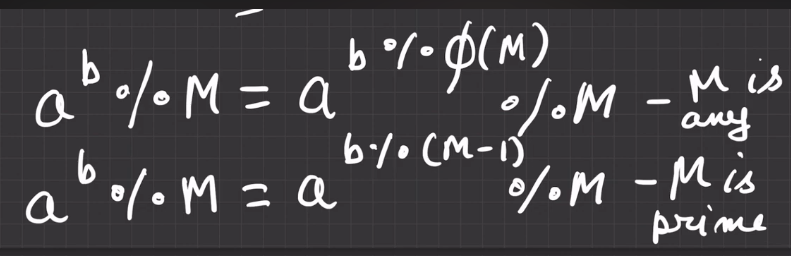 a^b % M = a^(b % ϕ(M)) % M - M is any
a^b % M = a^(b % (M-1)) % M - M is prime